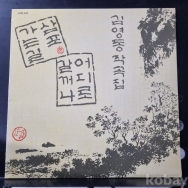 김영동작곡집
어디로
갈꺼나
삼포
가는길
kobay